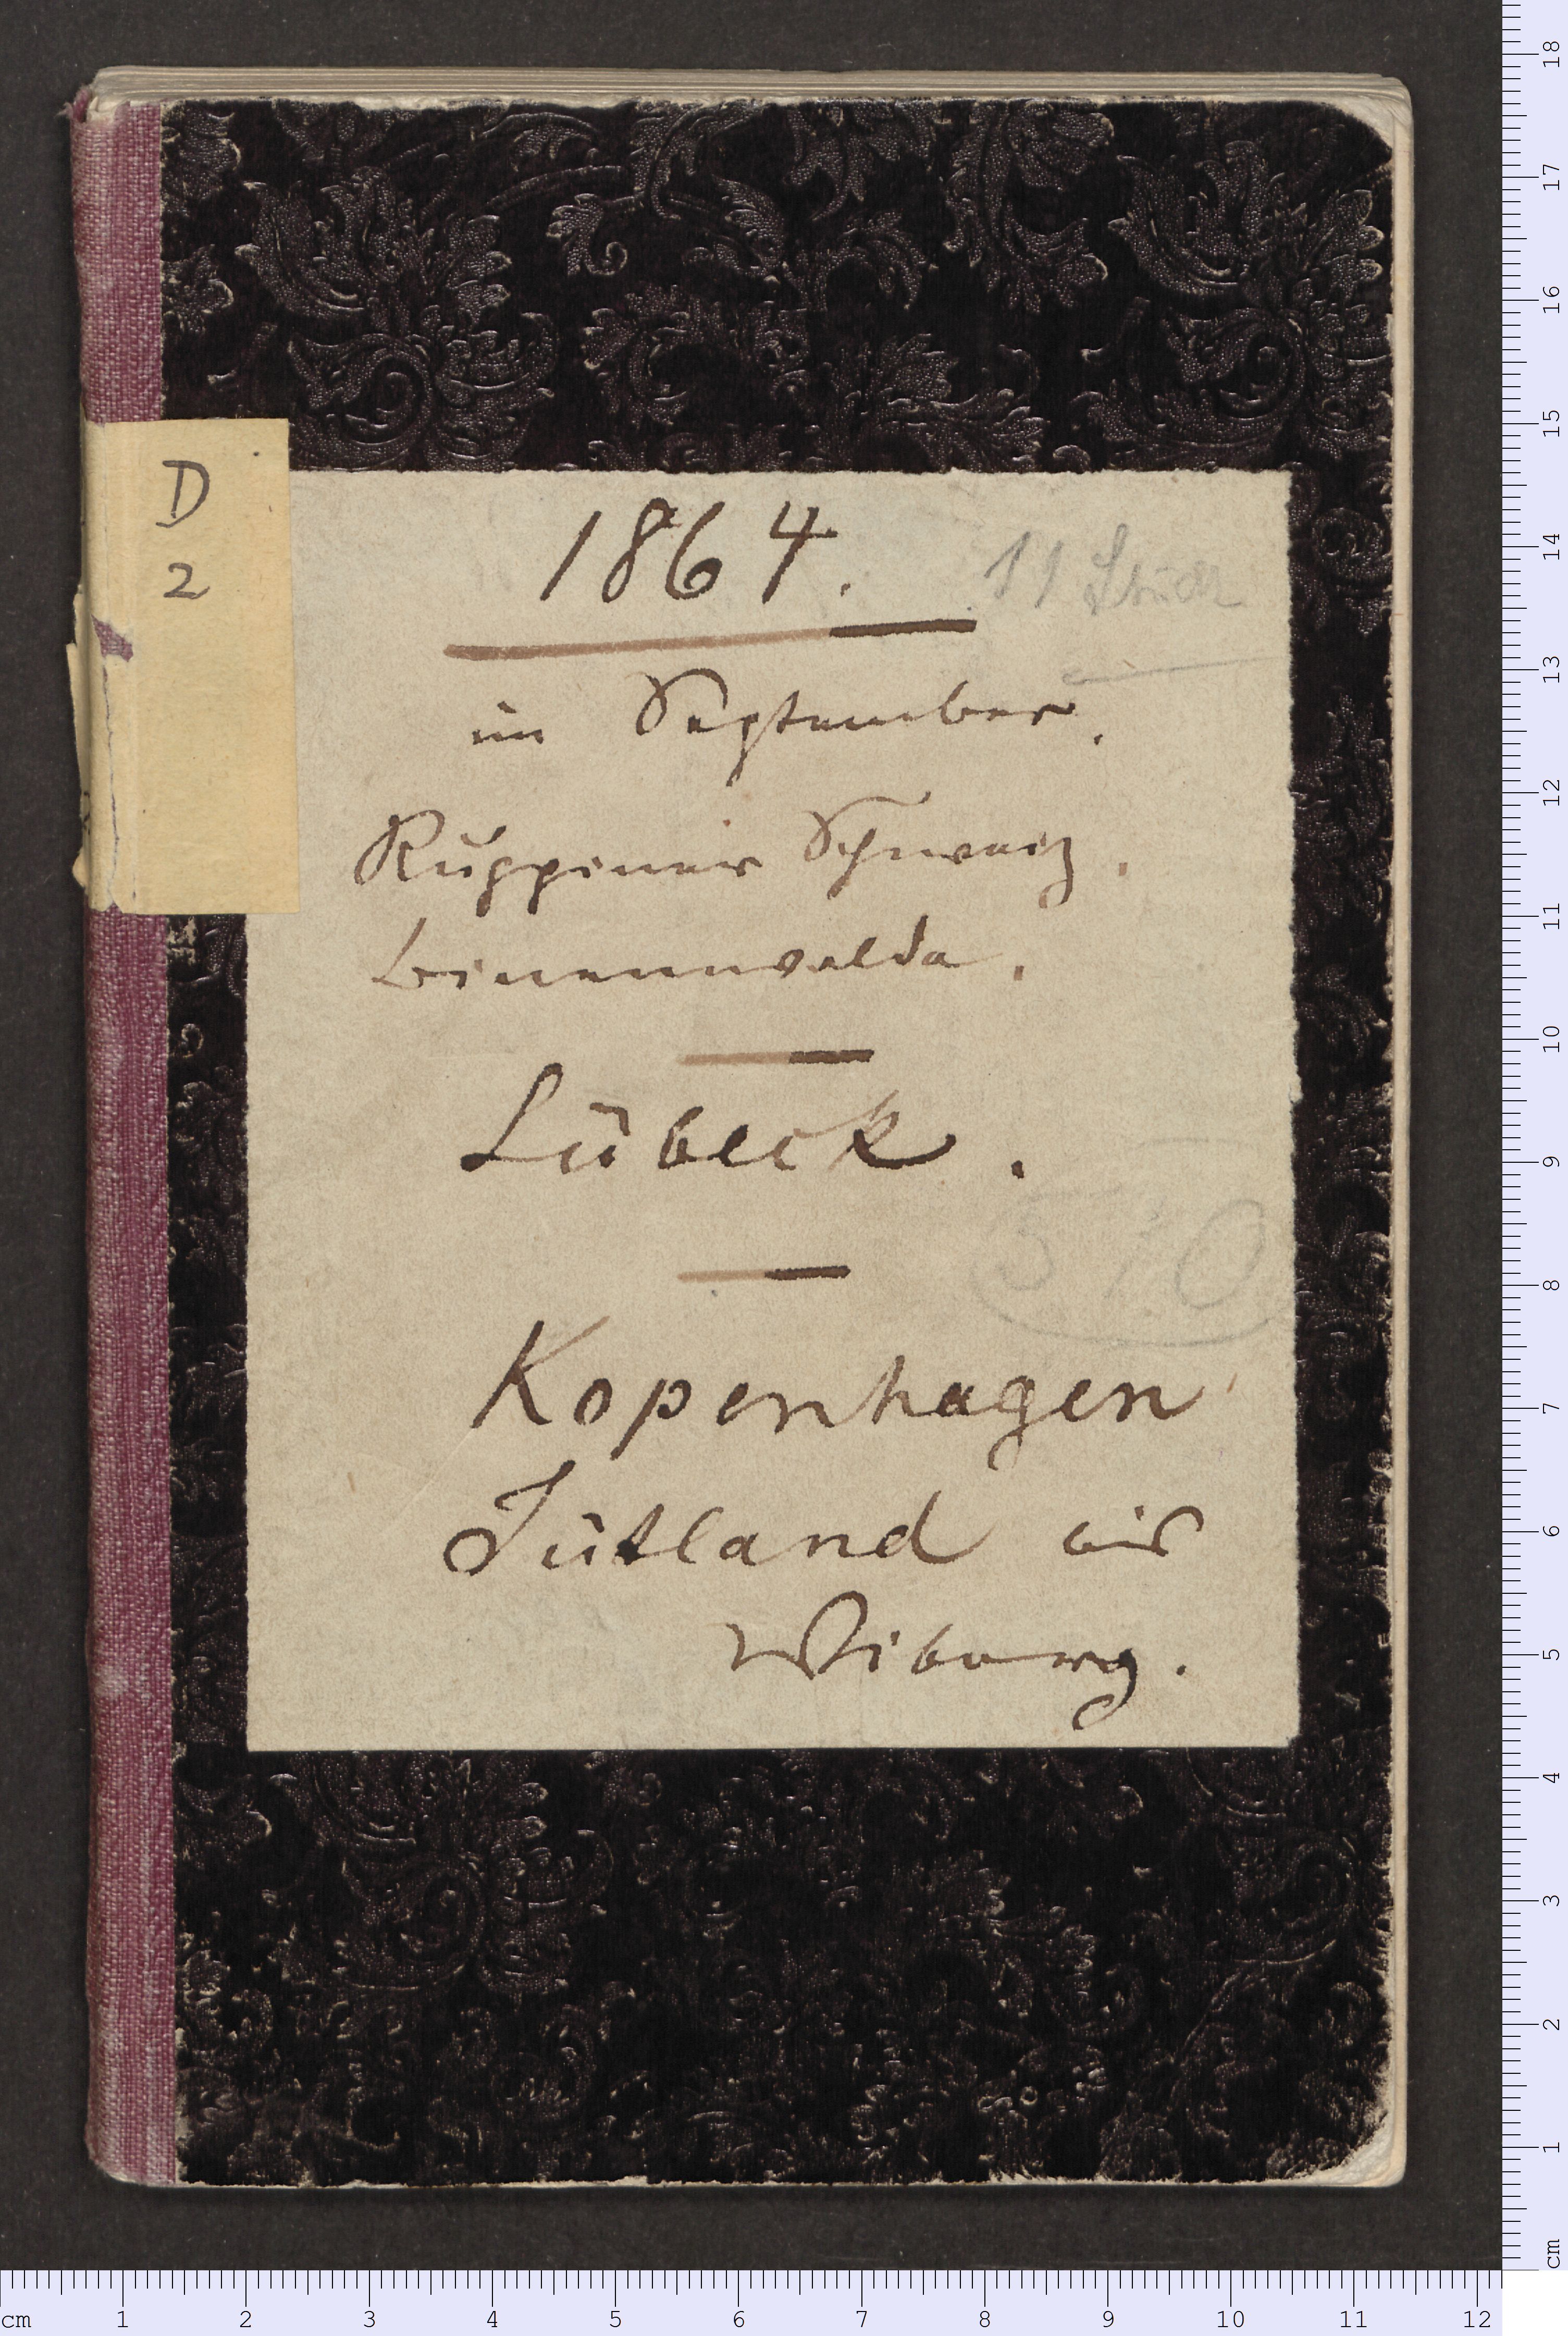 D
2
1864.
11 Stück
im September.
Ruppiner Schweiz.
Binenwalde.
Lübeck.
Kopenhagen
Jütland bis
Wiburg.
18
17
16
15
14
13
12
11
10
9
8
7
6
5
4
3
2
1
cm
cm 1 2 3 4 5 6 7 8 9 10 11 12